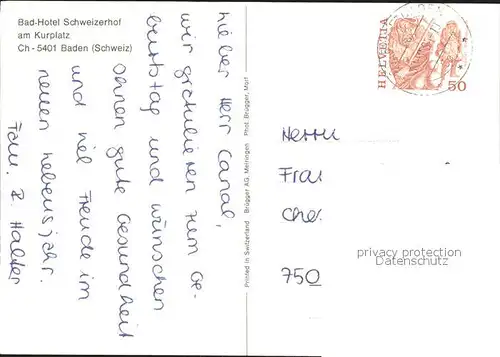 Bad-Hotel Schweizerhof
am Kurplatz
Ch - 5401 Baden (Schweiz)
Lieber Herr Canal,
wir gratulieren zum Ge-
burtstag und wünschen
Ihnen gute Gesundheit
und viel Freude im
neuen Lebensjahr.
Fam. R. Halter
Printed in Switzerland Brügger AG, Meiringen Phot. Brügger, Mort
HELVETIA
50
Herrn
Fra
Che
750
privacy protection
Datenschutz